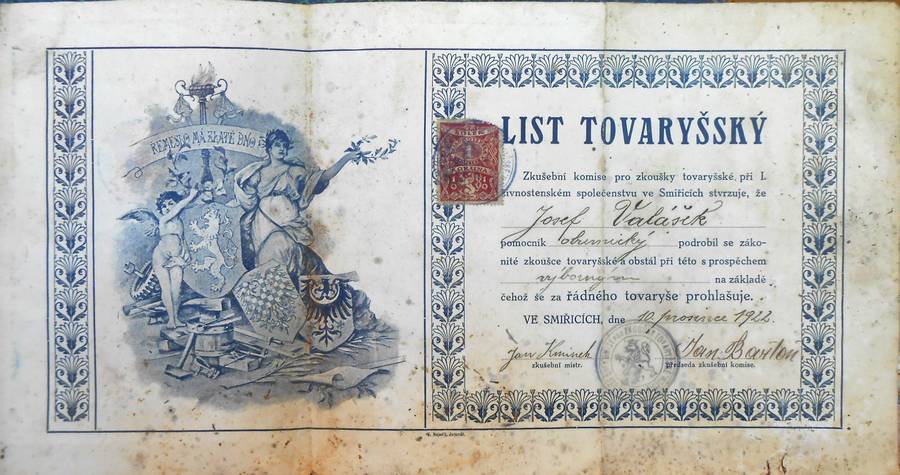 ŘEMESLO MÁ ZLATÉ DNO
KOLEK
1
KORUNA
LIST TOVARYŠSKÝ
Zkušební komise pro zkoušky tovaryšské při I.
živnostenském společenstvu ve Smiřicích stvrzuje, že
Josef Valášek
pomocník obuvnický podrobil se záko-
nité zkoušce tovaryšské a obstál při této s prospěchem
výborným na základě
čehož se za řádného tovaryše prohlašuje.
VE SMIŘICÍCH, dne 10 prosince 1922.
Jan Kmínek Jan Bartoň
zkušební mistr. předseda zkušební komise.